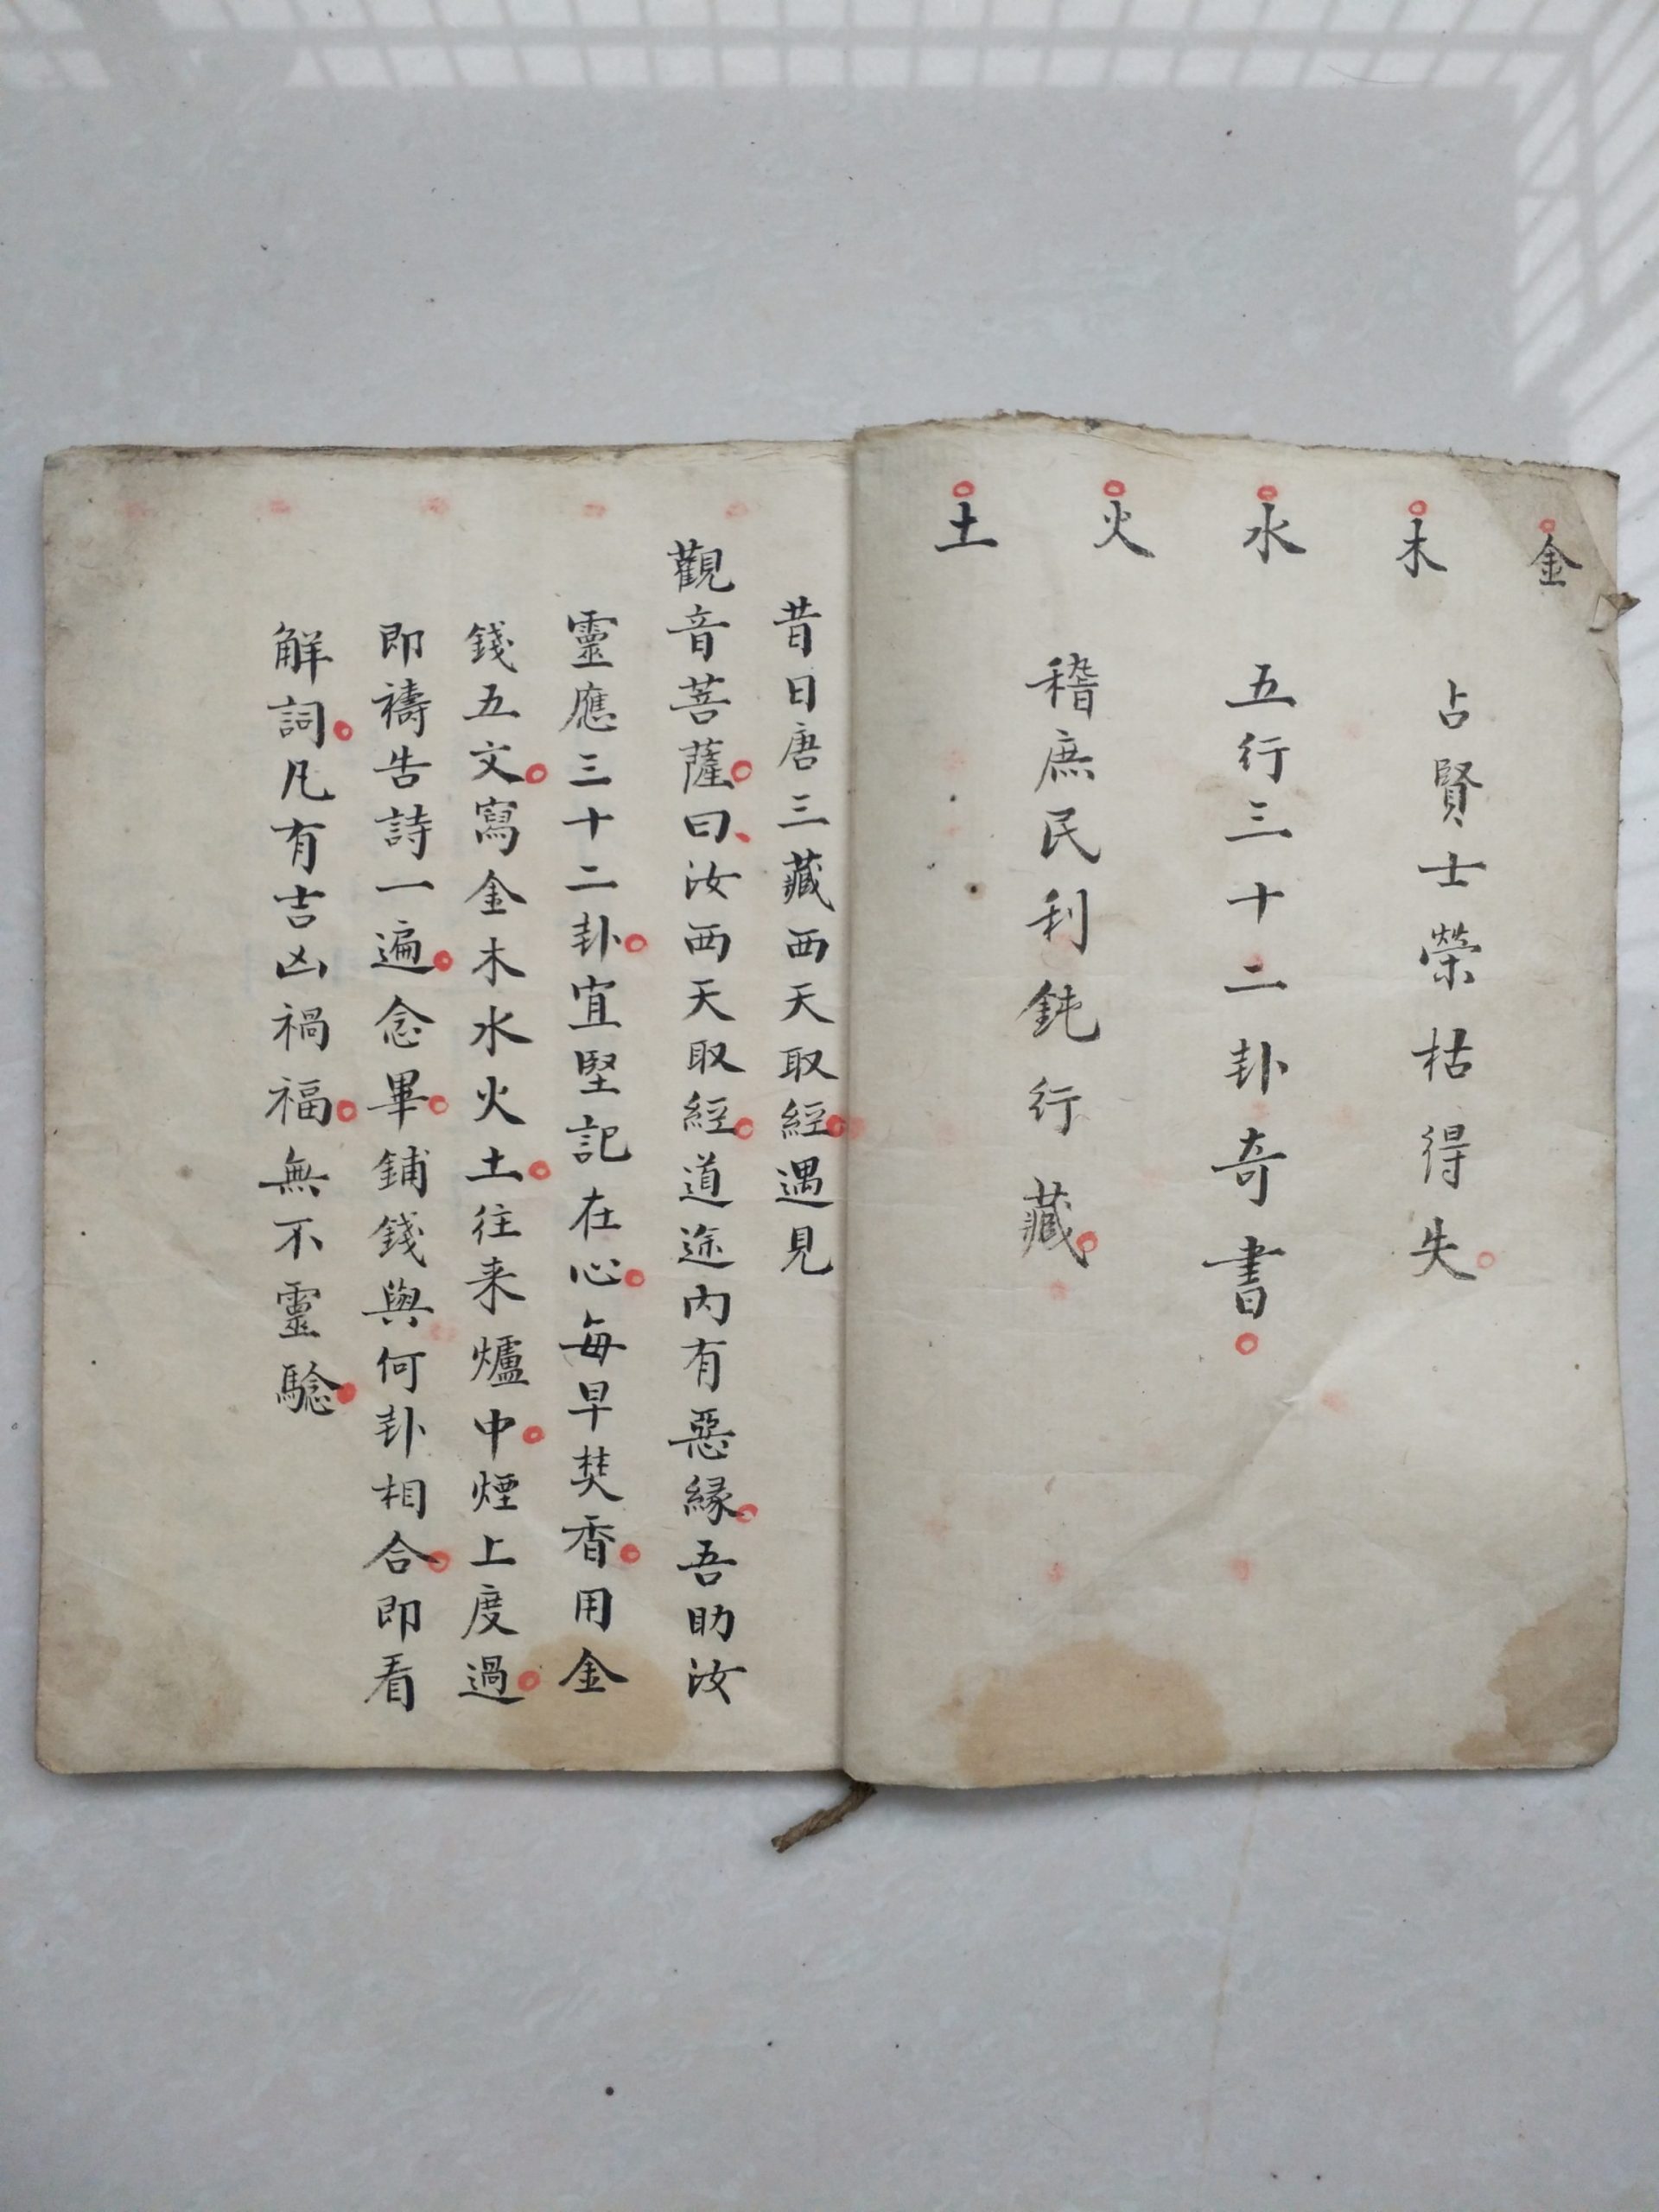 金 木 水 火 土
占賢士榮枯得失。
五行三十二卦奇書。
稽庶民利鈍行藏。
昔日唐三藏西天取經。遇見
觀音菩薩。曰、汝西天取經。道途內有惡緣。吾助汝
靈應三十二卦。宜堅記在心。每早焚香。用金
錢五文。寫金木水火土。往来爐中。煙上度過。
即禱告詩一遍。念畢。鋪錢與何卦相合。即看
解詞。凡有吉凶禍福。無不靈騐。